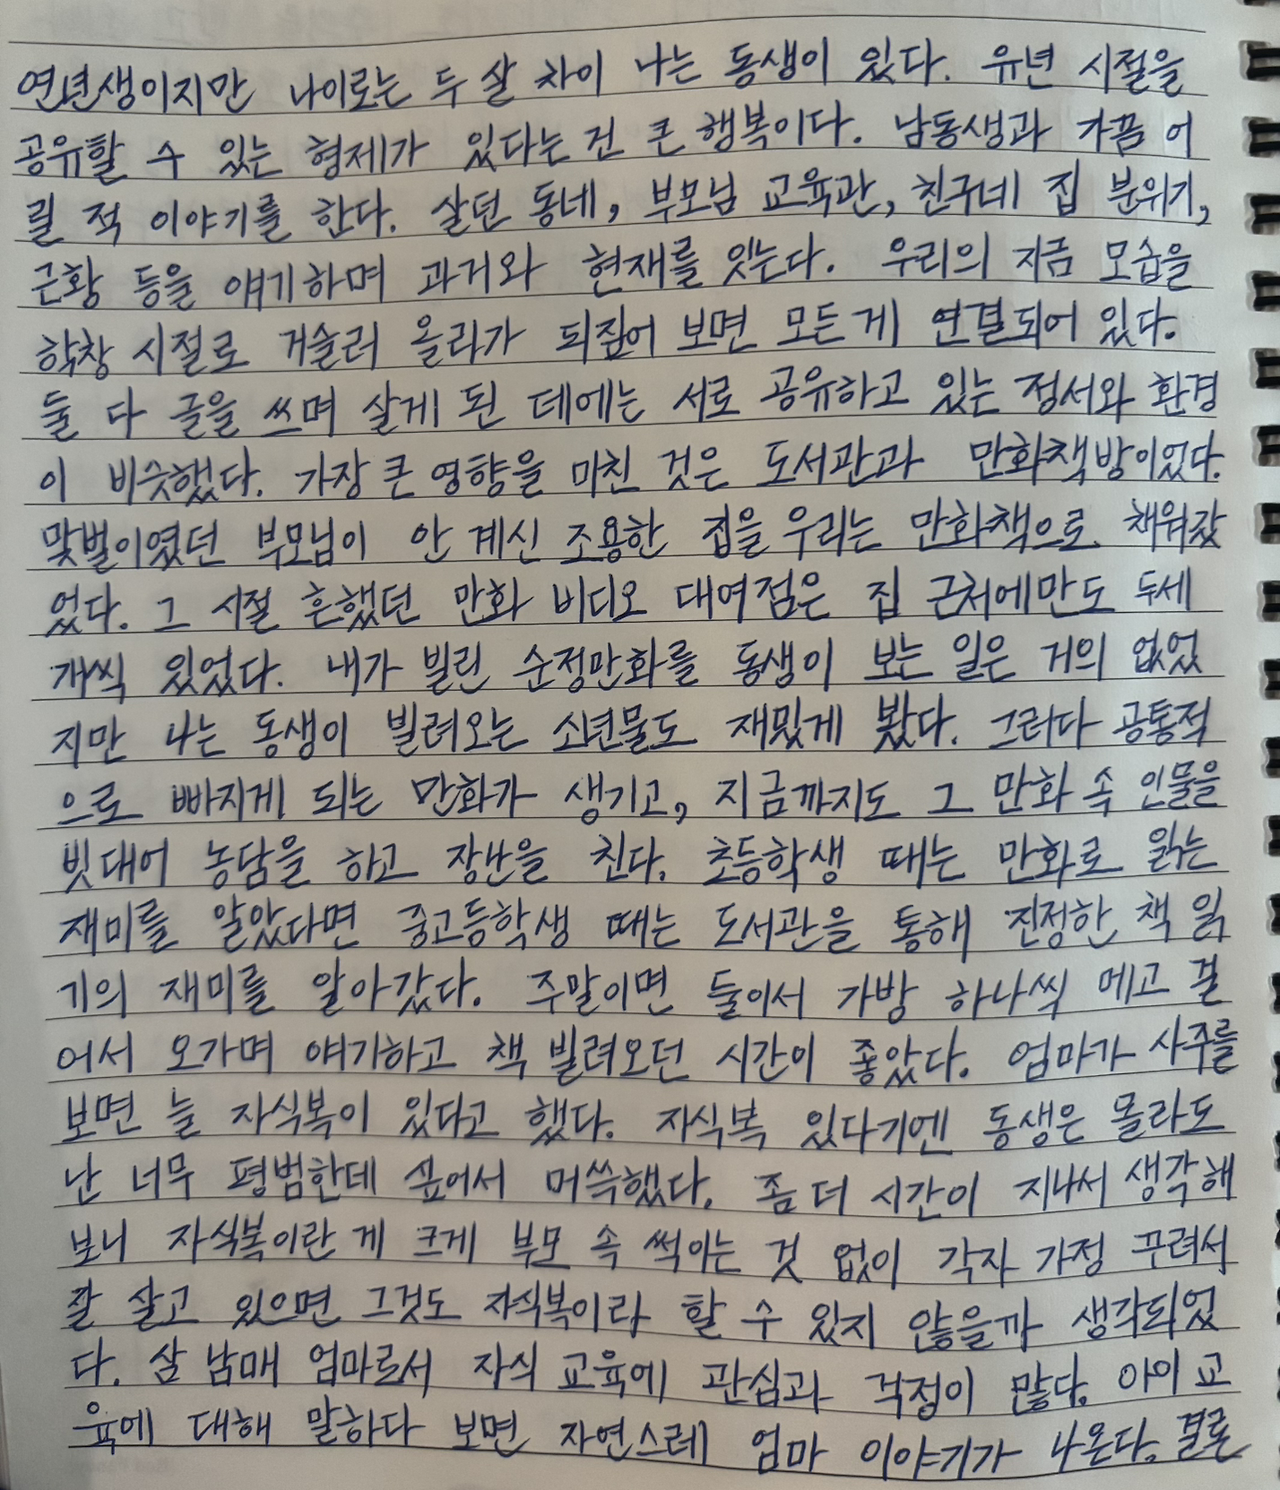 연년생이지만 나이로는 두 살 차이 나는 동생이 있다. 유년 시절을
공유할 수 있는 형제가 있다는 건 큰 행복이다. 남동생과 가끔 어
릴 적 이야기를 한다. 살던 동네, 부모님 교육관, 친구네 집 분위기,
근황 등을 얘기하며 과거와 현재를 잇는다. 우리의 지금 모습을
학창 시절로 거슬러 올라가 되짚어 보면 모든 게 연결되어 있다.
둘 다 글을 쓰며 살게 된 데에는 서로 공유하고 있는 정서와 환경
이 비슷했다. 가장 큰 영향을 미친 것은 도서관과 만화책방이었다.
맞벌이였던 부모님이 안 계신 조용한 집을 우리는 만화책으로 채워갔
었다. 그 시절 흔했던 만화 비디오 대여점은 집 근처에만도 두세
개씩 있었다. 내가 빌린 순정만화를 동생이 보는 일은 거의 없었
지만 나는 동생이 빌려오는 소년물도 재밌게 봤다. 그러다 공통적
으로 빠지게 되는 만화가 생기고, 지금까지도 그 만화 속 인물을
빗대어 농담을 하고 장난을 친다. 초등학생 때는 만화로 읽는
재미를 알았다면 중고등학생 때는 도서관을 통해 진정한 책 읽
기의 재미를 알아갔다. 주말이면 둘이서 가방 하나씩 메고 걸
어서 오가며 얘기하고 책 빌려오던 시간이 좋았다. 엄마가 사주를
보면 늘 자식복이 있다고 했다. 자식복 있다기엔 동생은 몰라도
난 너무 평범한데 싶어서 머쓱했다. 좀 더 시간이 지나서 생각해
보니 자식복이란 게 크게 부모 속 썩이는 것 없이 각자 가정 꾸려서
잘 살고 있으면 그것도 자식복이라 할 수 있지 않을까 생각되었
다. 삼 남매 엄마로서 자식 교육에 관심과 걱정이 많다. 아이 교
육에 대해 말하다 보면 자연스레 엄마 이야기가 나온다. 결론